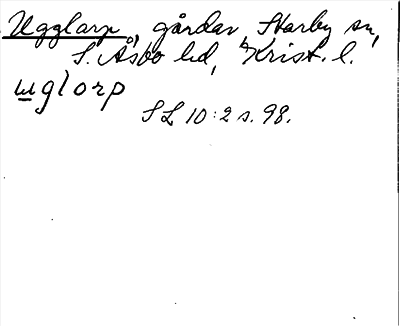 Ugglarp, gårdar, Starby sn,
S. Åsbo hd, Krist. l.
uglorp
SL 10:2 s. 98.